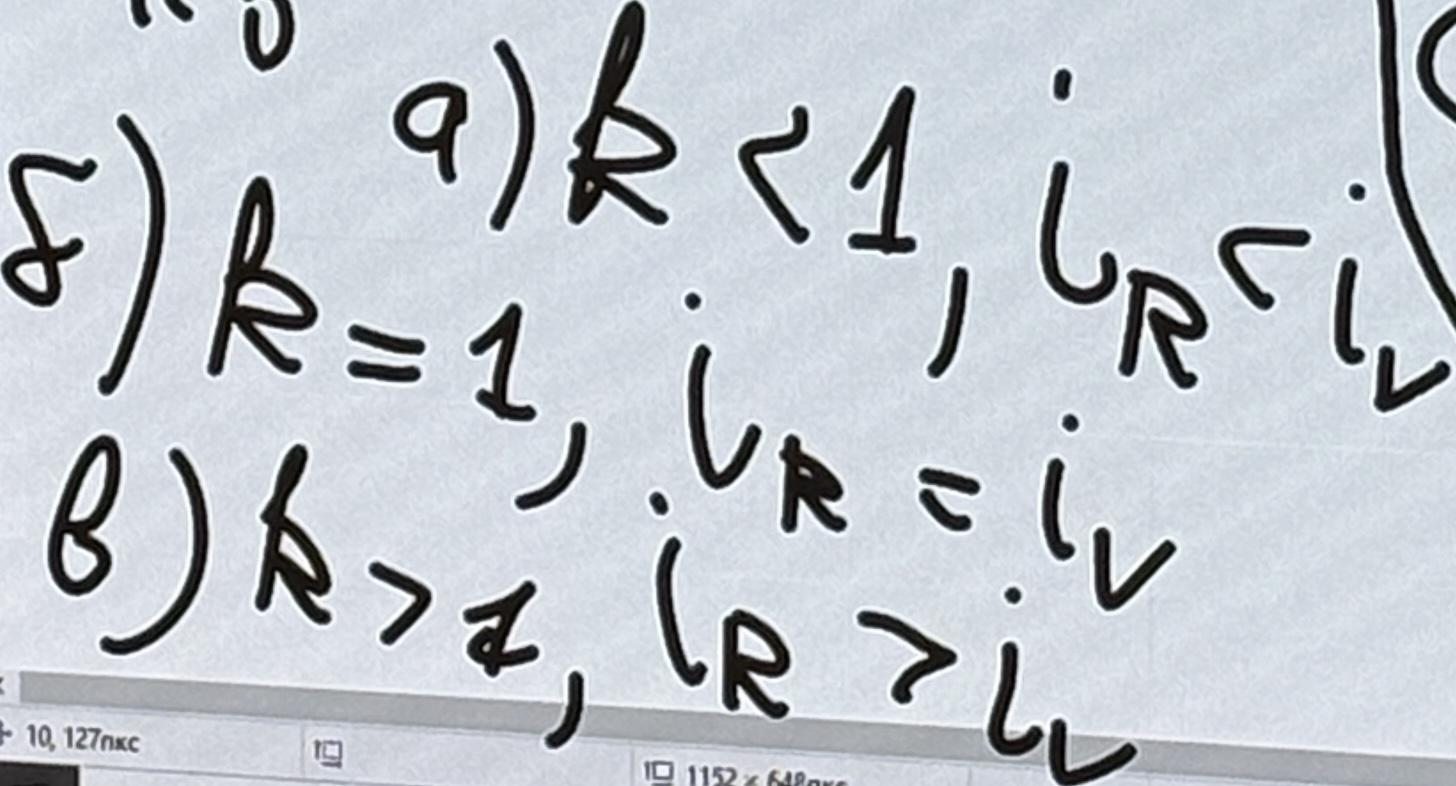 а) k < 1, i_R < i_V
б) k = 1, i_R = i_V
в) k > 1, i_R > i_V
10, 127пкс
1152 × 648пкс